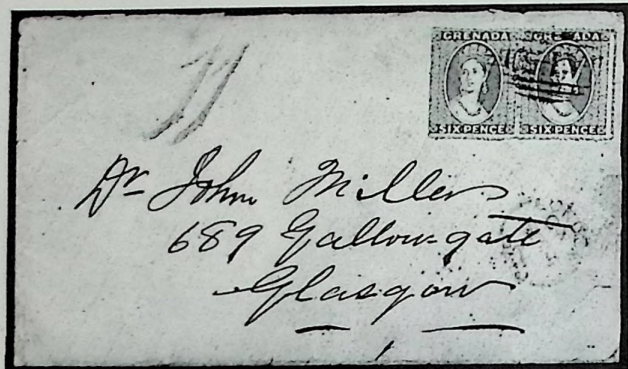 GRENADA
SIX PENCE
GRENADA
SIX PENCE
Dr John Miller
689 Gallowgate
Glasgow